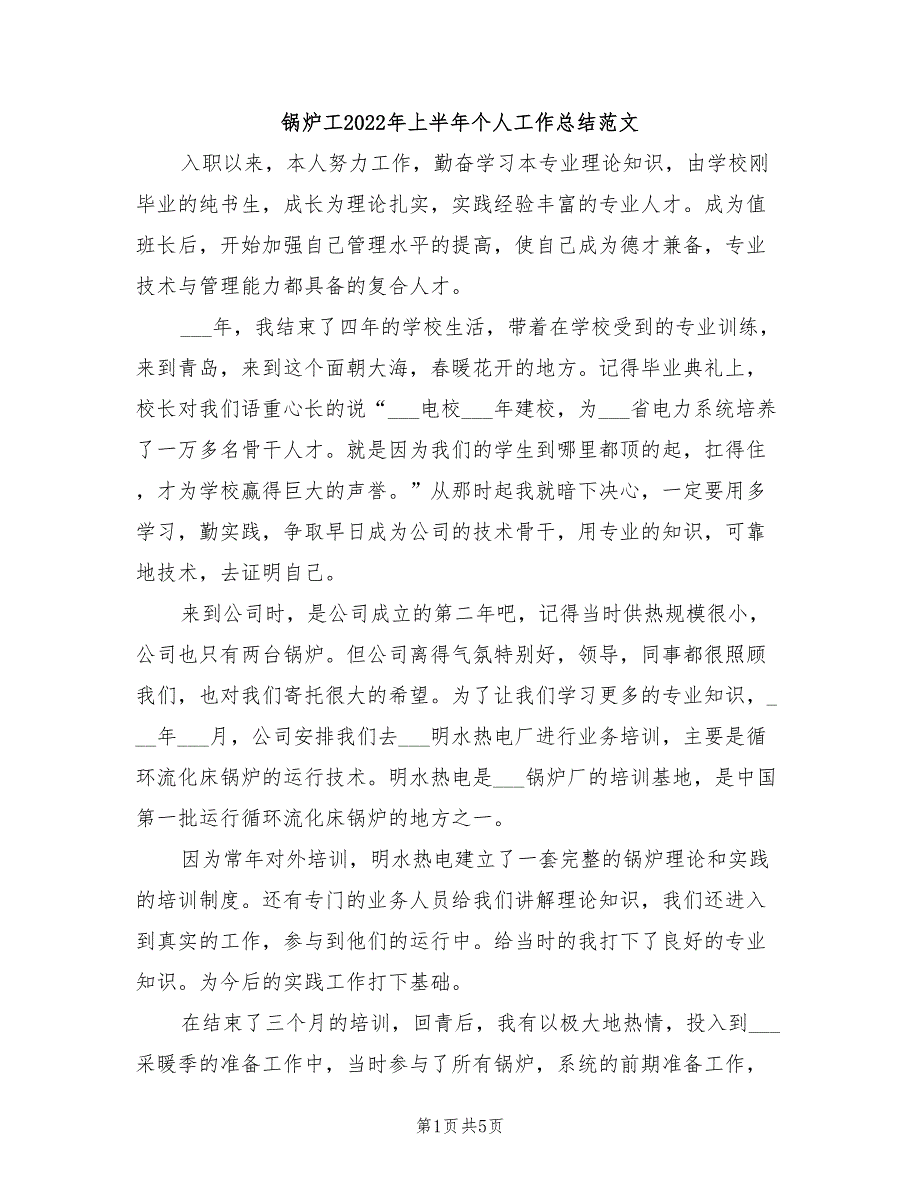 锅炉工2022年上半年个人工作总结范文
入职以来，本人努力工作，勤奋学习本专业理论知识，由学校刚
毕业的纯书生，成长为理论扎实，实践经验丰富的专业人才。成为值
班长后，开始加强自己管理水平的提高，使自己成为德才兼备，专业
技术与管理能力都具备的复合人才。
___年，我结束了四年的学校生活，带着在学校受到的专业训练，
来到青岛，来到这个面朝大海，春暖花开的地方。记得毕业典礼上，
校长对我们语重心长的说“___电校___年建校，为___省电力系统培养
了一万多名骨干人才。就是因为我们的学生到哪里都顶的起，扛得住
，才为学校赢得巨大的声誉。”从那时起我就暗下决心，一定要用多
学习，勤实践，争取早日成为公司的技术骨干，用专业的知识，可靠
地技术，去证明自己。
来到公司时，是公司成立的第二年吧，记得当时供热规模很小，
公司也只有两台锅炉。但公司离得气氛特别好，领导，同事都很照顾
我们，也对我们寄托很大的希望。为了让我们学习更多的专业知识，_
__年___月，公司安排我们去___明水热电厂进行业务培训，主要是循
环流化床锅炉的运行技术。明水热电是___锅炉厂的培训基地，是中国
第一批运行循环流化床锅炉的地方之一。
因为常年对外培训，明水热电建立了一套完整的锅炉理论和实践
的培训制度。还有专门的业务人员给我们讲解理论知识，我们还进入
到真实的工作，参与到他们的运行中。给当时的我打下了良好的专业
知识。为今后的实践工作打下基础。
在结束了三个月的培训，回青后，我有以极大地热情，投入到___
采暖季的准备工作中，当时参与了所有锅炉，系统的前期准备工作，
第1页共5页